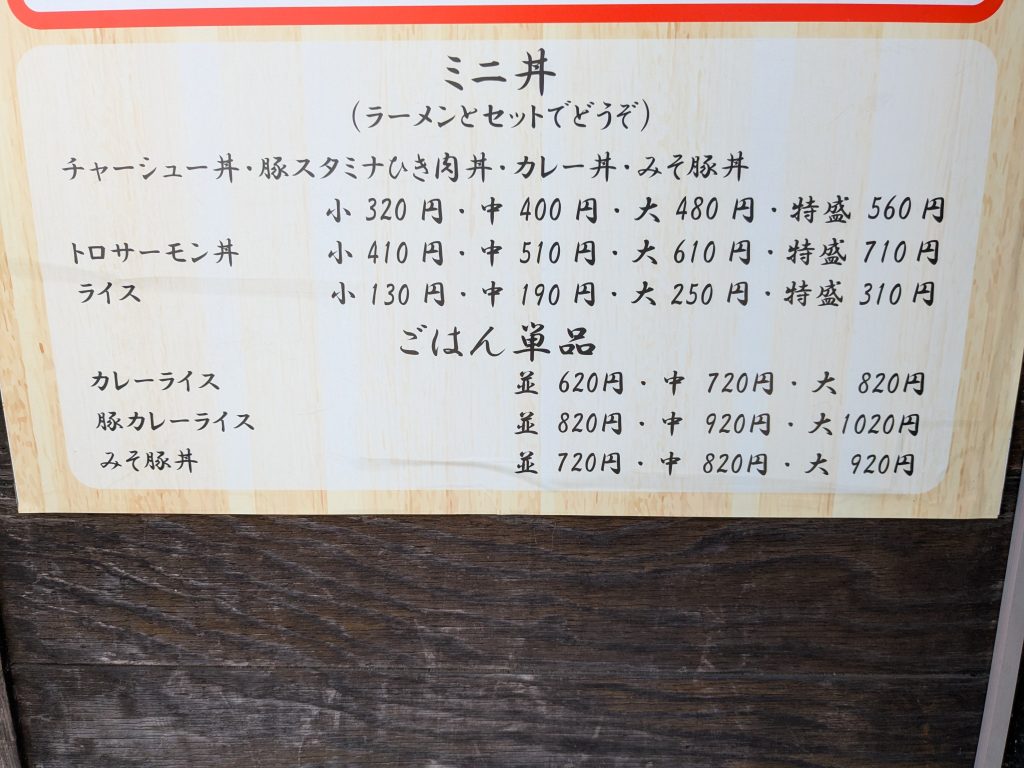 ミニ丼
(ラーメンとセットでどうぞ)
チャーシュー丼・豚スタミナひき肉丼・カレー丼・みそ豚丼
小 320 円・中 400 円・大 480 円・特盛 560 円
トロサーモン丼 小 410 円・中 510 円・大 610 円・特盛 710 円
ライス 小 130 円・中 190 円・大 250 円・特盛 310 円
ごはん単品
カレーライス 並 620円・中 720円・大 820円
豚カレーライス 並 820円・中 920円・大1020円
みそ豚丼 並 720円・中 820円・大 920円